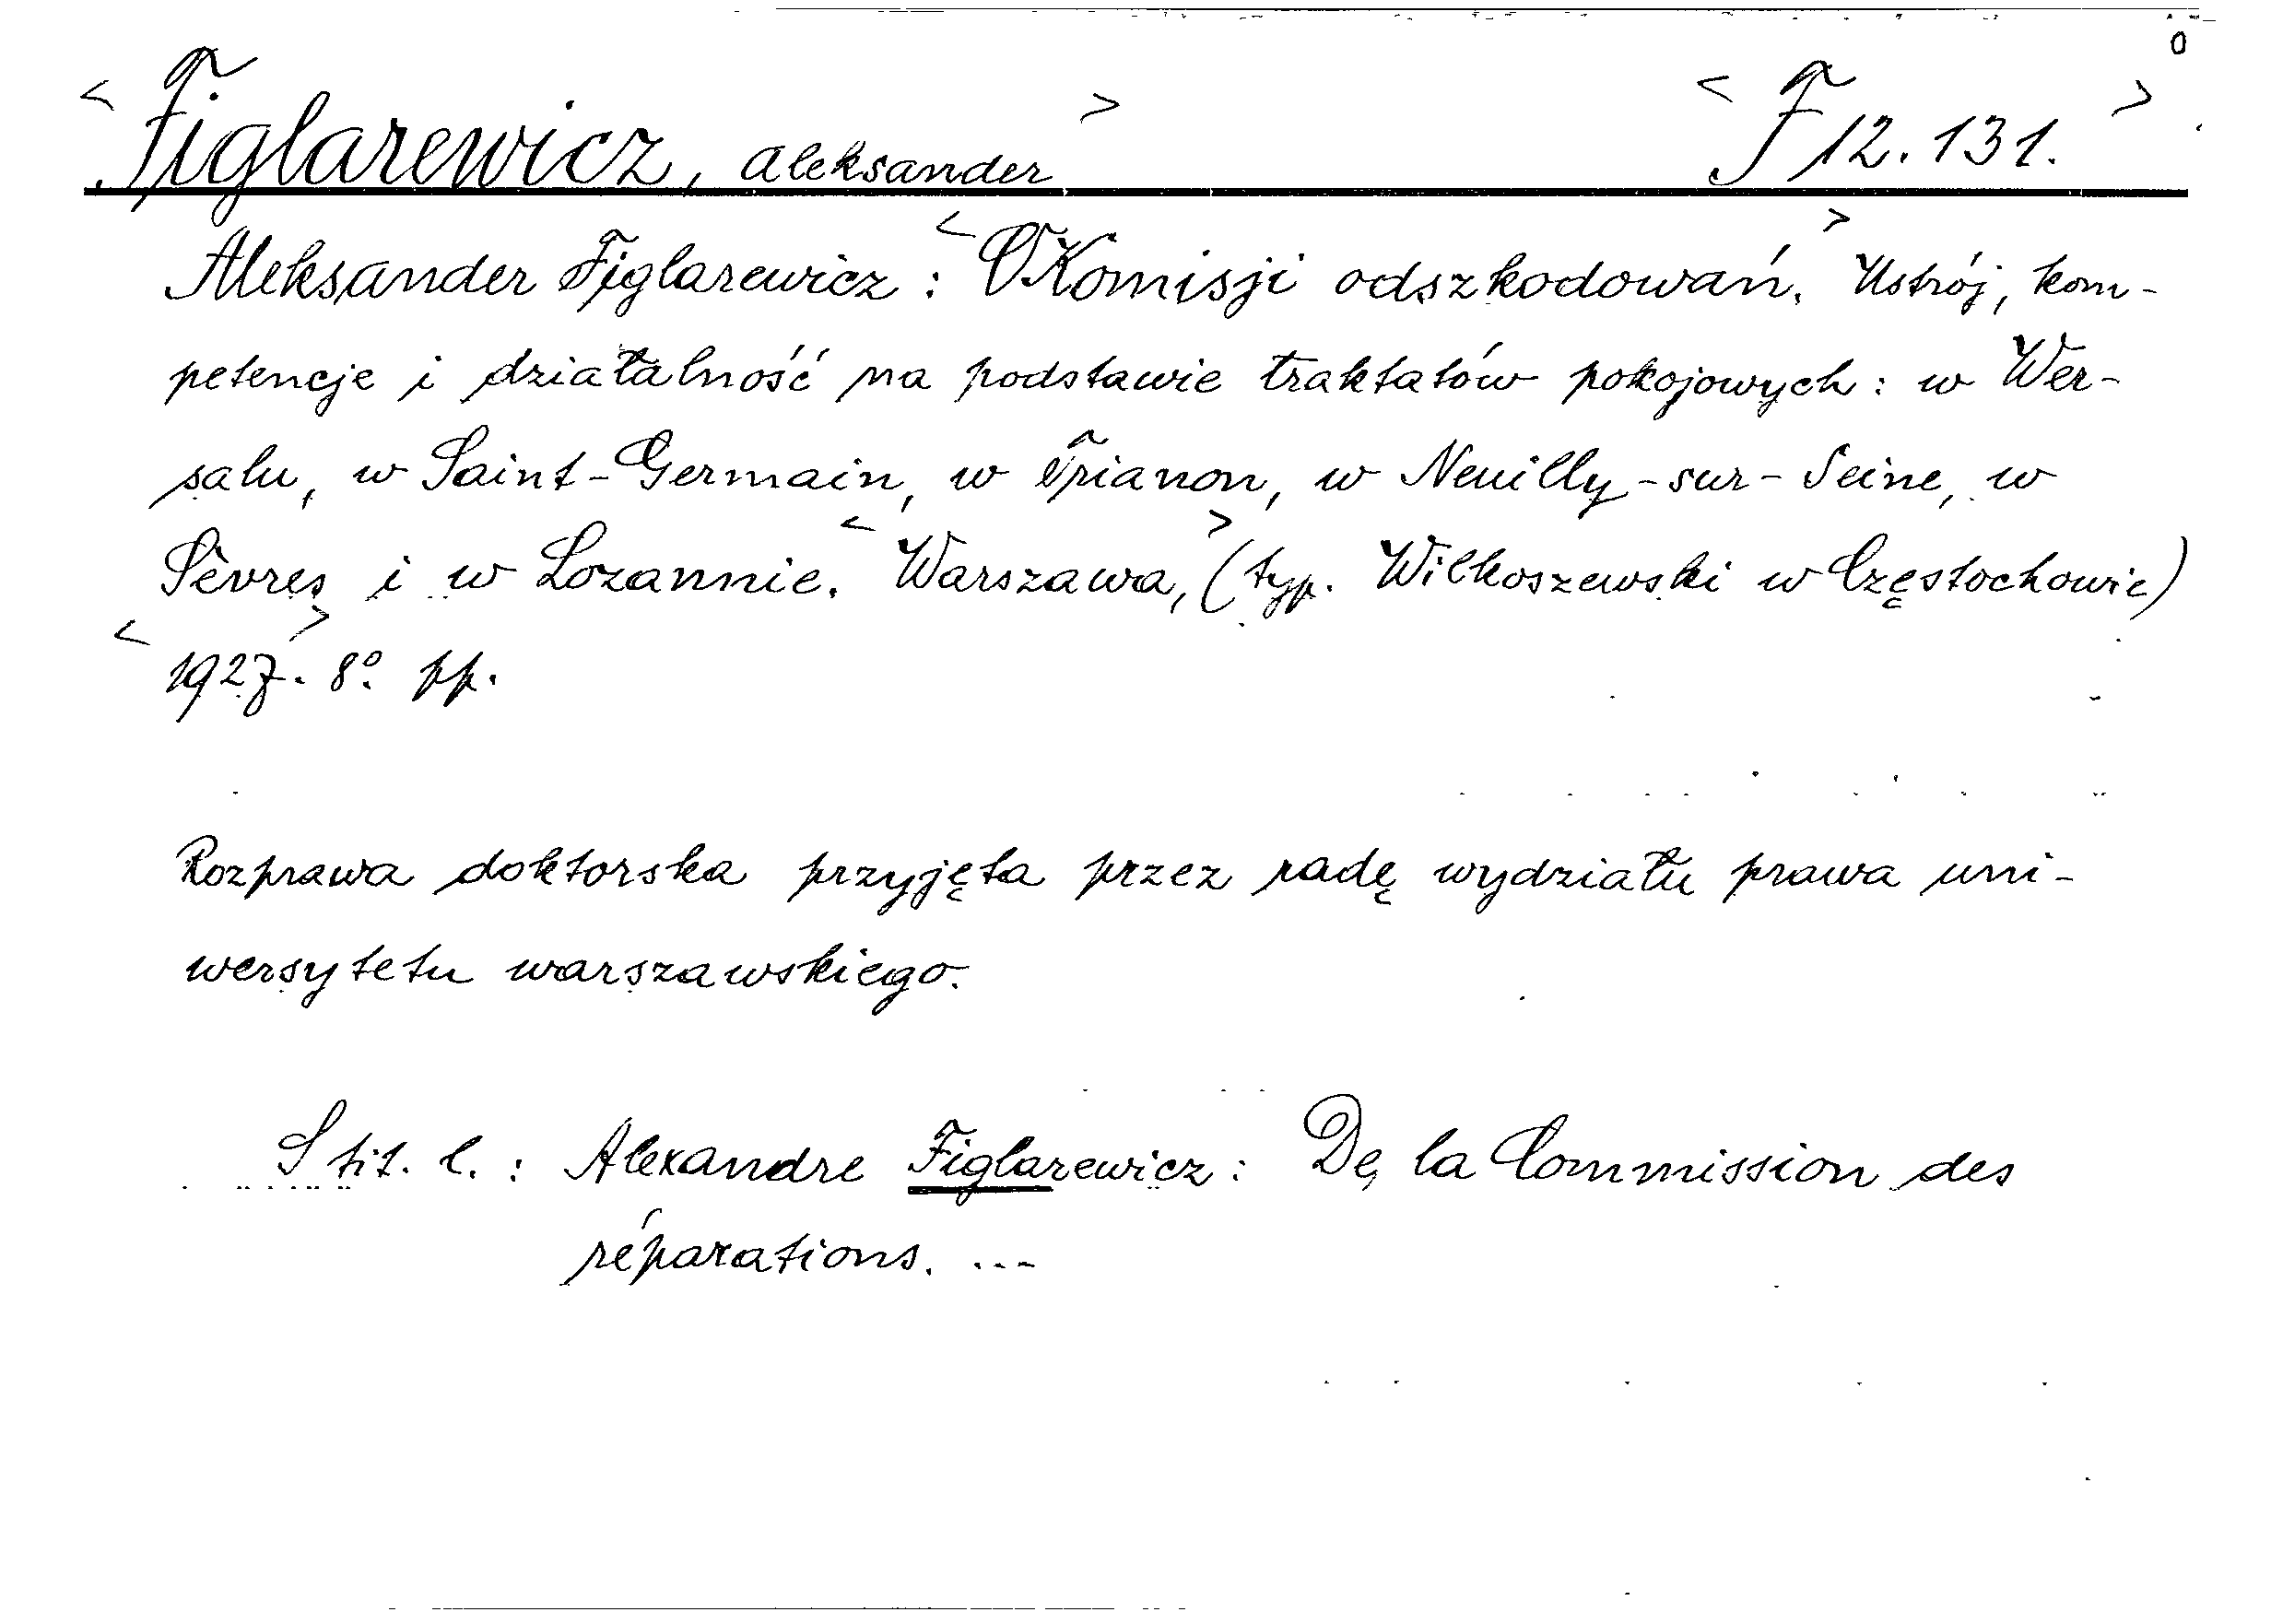 o
< Figlarewicz, Aleksander > < F 12.131. >
Aleksander Figlarewicz : < O Komisji odszkodowań. > Ustrój, kom-
petencje i działalność na podstawie traktatów pokojowych: w Wer-
salu, w Saint-Germain, w Trianon, w Neuilly-sur-Seine, w
Sèvres i w Lozannie. < Warszawa, > (typ. Wilkoszewski w Częstochowie)
< 1927. > 8º. pp.
Rozprawa doktorska przyjęta przez radę wydziału prawa uni-
wersytetu warszawskiego.
S tit. l. : Alexandre Figlarewicz : De la Commission des
réparations. ...